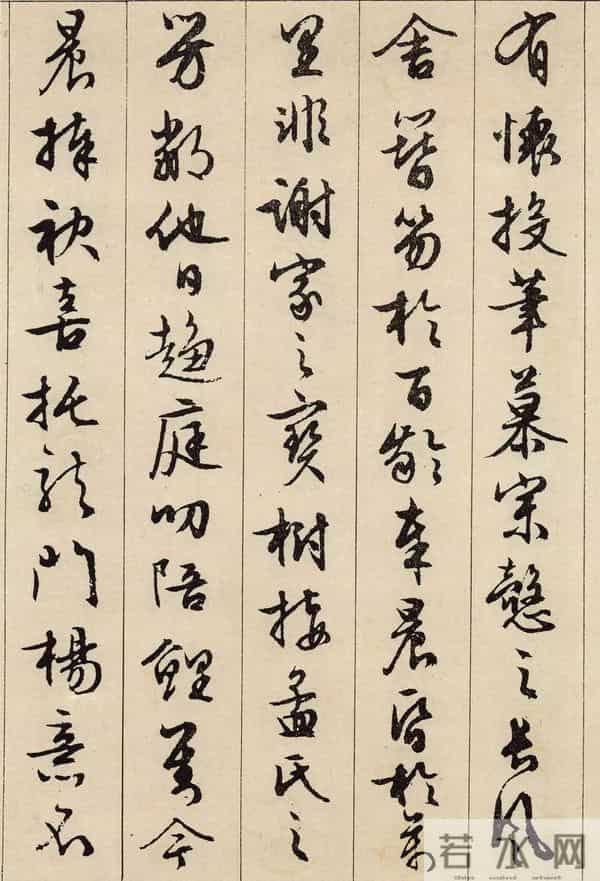 有懷投筆慕宗愨之長風
舍簪笏於百齡奉晨昏於萬
里非謝家之寶樹接孟氏之
芳鄰他日趨庭叨陪鯉對今
晨捧袂喜托龍門楊意不
若水网